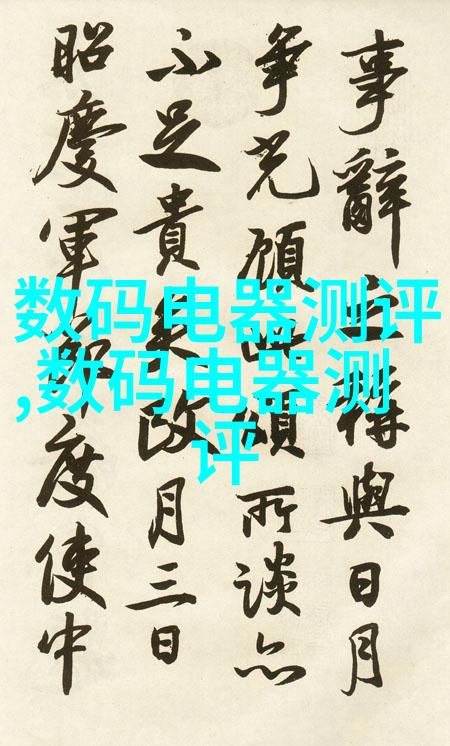 事辭之得與日月
爭光顧此頌所談亦
不足貴矣改月三日
昭慶軍節度使中
数码电器测评
,数码电器测
评